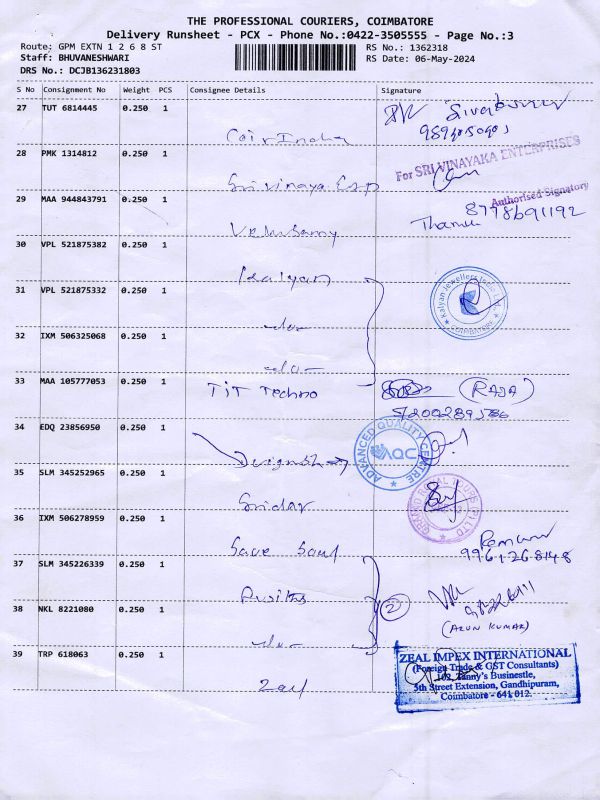 THE PROFESSIONAL COURIERS, COIMBATORE
Delivery Runsheet - PCX - Phone No.:0422-3505555 - Page No.:3
Route: GPM EXTN 1 2 6 8 ST
RS No.: 1362318
Staff: BHUVANESHWARI
RS Date: 06-May-2024
DRS No.: DCJB136231803
S No Consignment No Weight PCS Consignee Details Signature
27 TUT 6814445 0.250 1
Coir India
28 PMK 1314812 0.250 1
For SRI VINAYAKA ENTERPRISES
Sri vinaya Exp
29 MAA 944843791 0.250 1
Authorised Signatory
8778691192
30 VPL 521875382 0.250 1
Kalyan
31 VPL 521875332 0.250 1
Kalyan Jewellers India Ltd.
COIMBATORE
-do-
32 IXM 506325068 0.250 1
-do-
33 MAA 105777053 0.250 1
TiT Techno
(RAJA)
34 EDQ 23856950 0.250 1
ADVANCED QUALITY CENTRE
AQC
35 SLM 345252965 0.250 1
Sridar
36 IXM 506278959 0.250 1
Save Soul
37 SLM 345226339 0.250 1
38 NKL 8221080 0.250 1
2
(ARUN KUMAR)
-do-
39 TRP 618063 0.250 1
Zeal
ZEAL IMPEX INTERNATIONAL
(Foreign Trade & GST Consultants)
102, Tanny's Businestle,
5th Street Extension, Gandhipuram,
Coimbatore - 641 012.